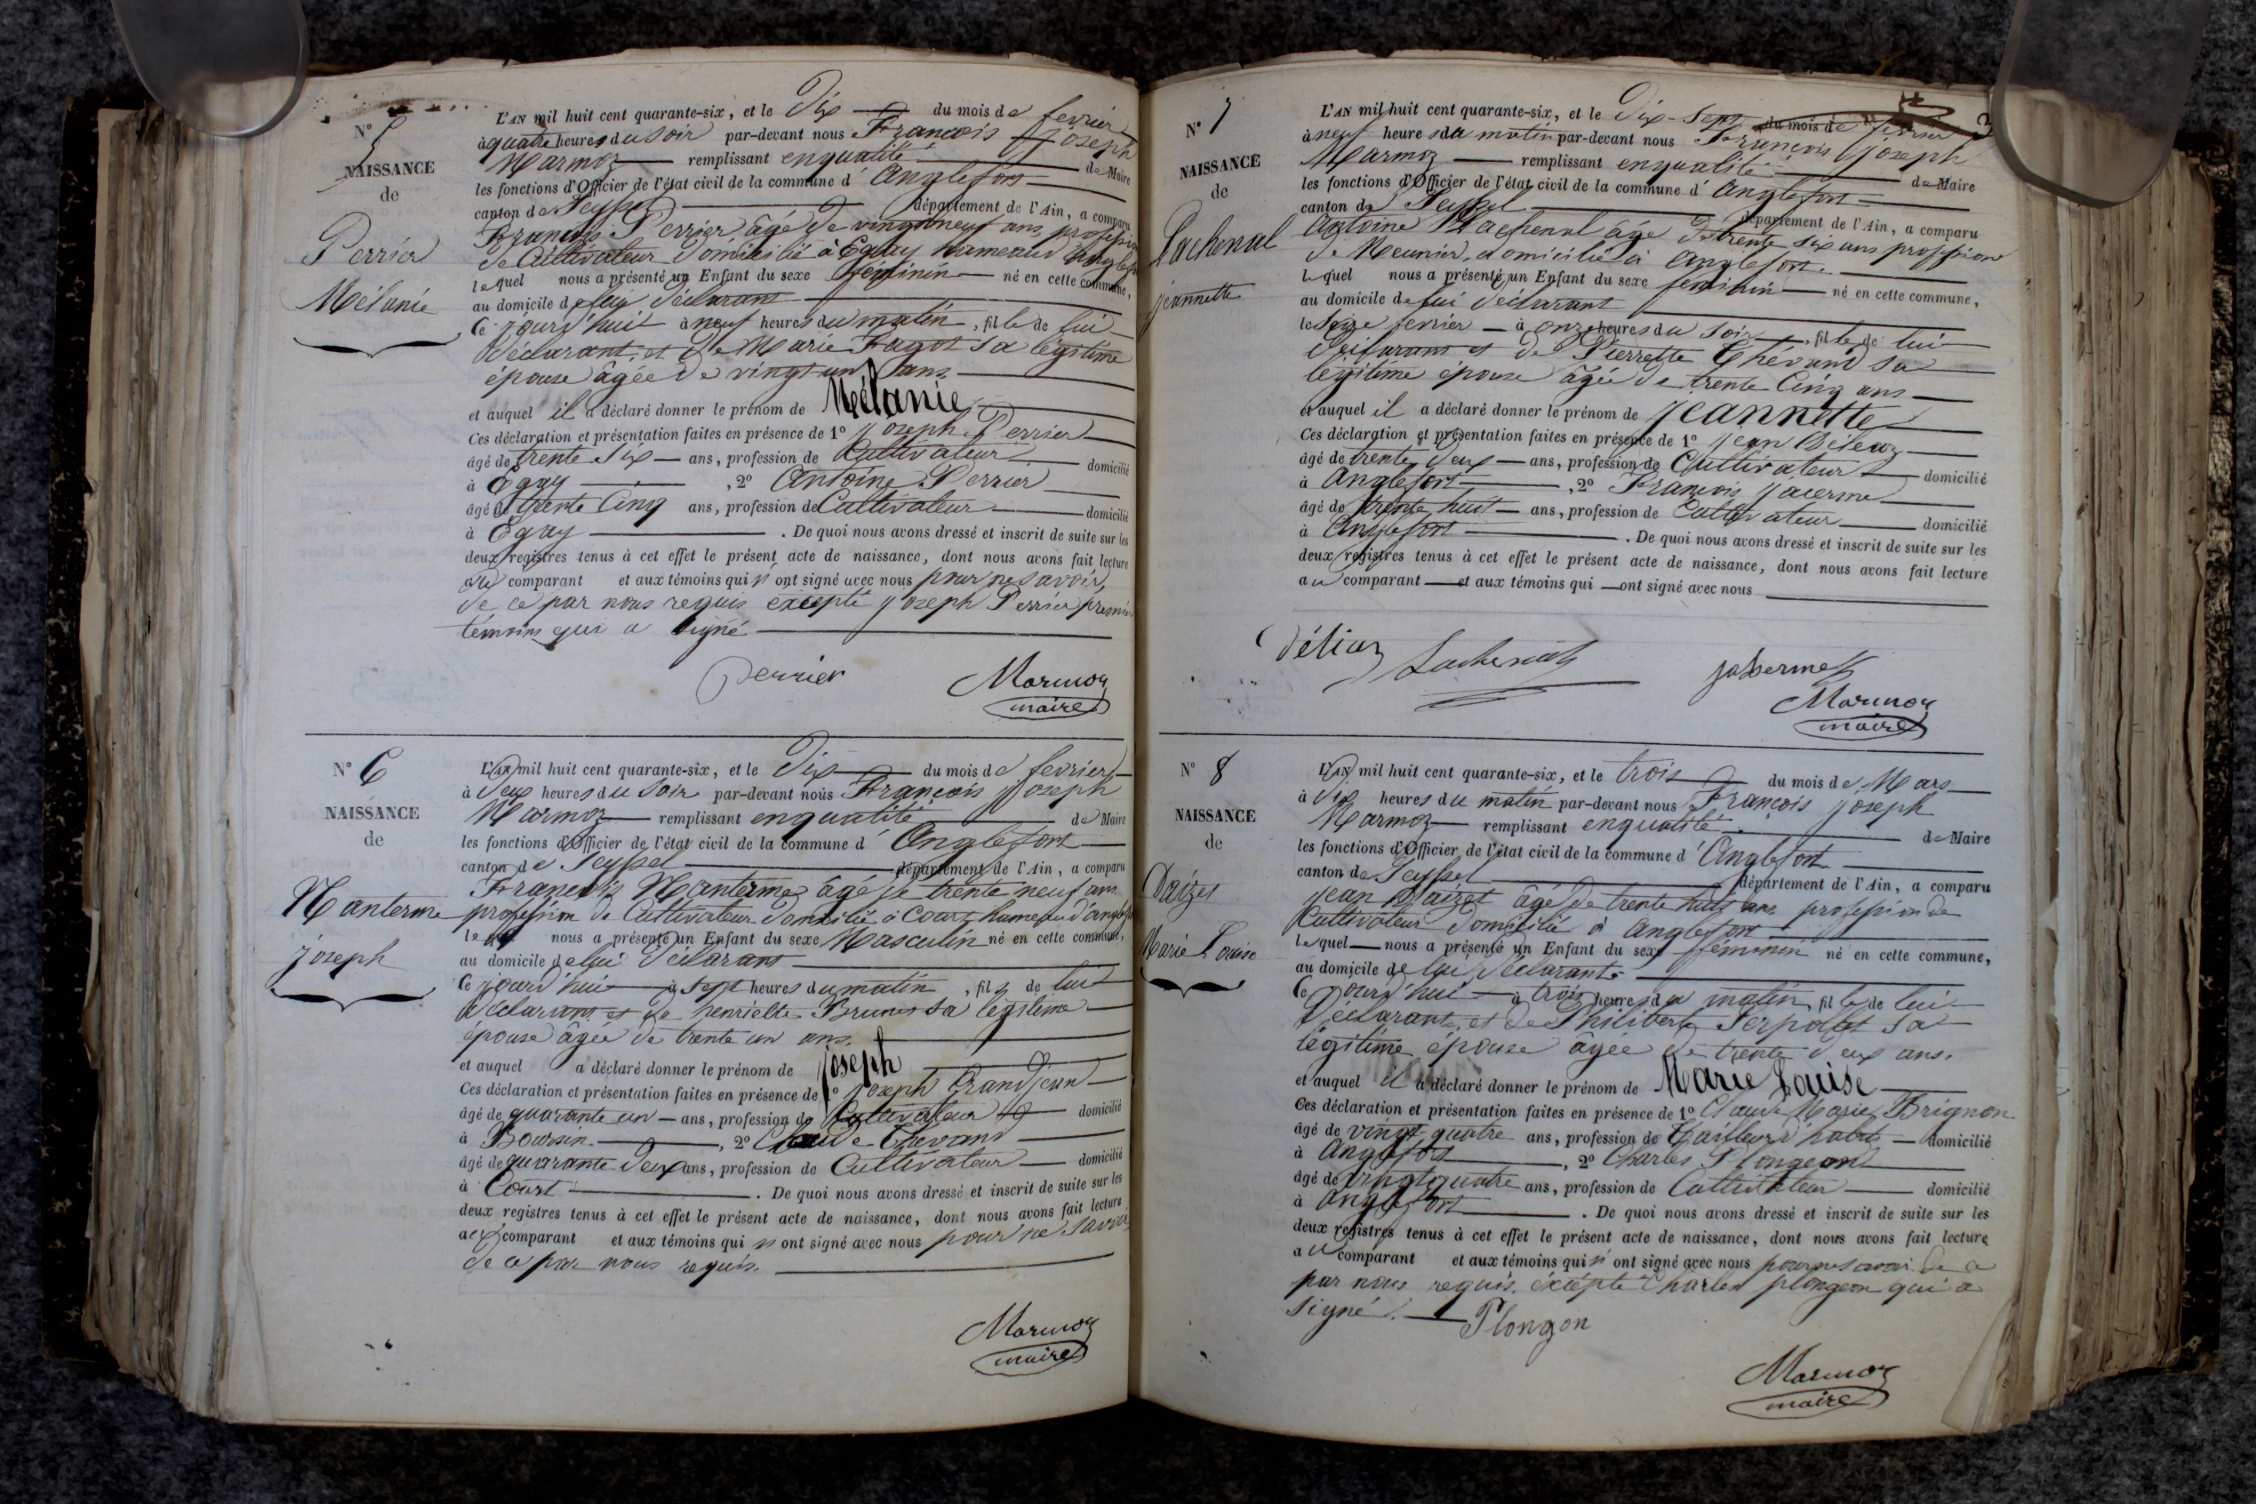 N° 5
NAISSANCE
de
Perrier
Mélanie
L'AN mil huit cent quarante-six, et le Dix du mois de fevrier
à quatre heures du soir par-devant nous François Joseph
Marmoz remplissant en qualité de Maire
les fonctions d'Officier de l'état civil de la commune d' Anglefort
canton de Seyssel département de l'Ain, a comparu
François Perrier âgé de vingt neuf ans, profession
de Cultivateur domicilié à Egay hameau d'anglefort
lequel nous a présenté un Enfant du sexe féminin né en cette commune,
au domicile de lui déclarant
Ce jourd'hui à neuf heures du matin, fille de lui
déclarant, et de Marie Fagot sa légitime
épouse âgée de vingt un ans
et auquel il a déclaré donner le prénom de Mélanie
Ces déclaration et présentation faites en présence de 1° Joseph Perrier
âgé de trente six ans, profession de Cultivateur domicilié
à Egay, 2° Antoine Perrier
âgé de trente Cinq ans, profession de Cultivateur domicilié
à Egay. De quoi nous avons dressé et inscrit de suite sur les
deux registres tenus à cet effet le présent acte de naissance, dont nous avons fait lecture
au comparant et aux témoins qui n'ont signé avec nous pour ne savoir
de ce par nous requis excepté Joseph Perrier premier
témoins qui a signé
perrier Marmoz
maire
N° 6
NAISSANCE
de
Nanterme
joseph
L'AN mil huit cent quarante-six, et le Dix du mois de fevrier
à Deux heures du soir par-devant nous François Joseph
Marmoz remplissant en qualité de Maire
les fonctions d'Officier de l'état civil de la commune d' Anglefort
canton de Seyssel département de l'Ain, a comparu
François Nanterme âgé de trente neuf ans
profession de Cultivateur domicilié à Court hameau d'anglefort
le nous a présenté un Enfant du sexe Masculin né en cette commune,
au domicile de lui déclarant
Ce jourd'hui à sept heures du matin, fils de lui
déclarant et de henriette Brunet sa légitime
épouse âgée de trente un ans.
et auquel a déclaré donner le prénom de joseph
Ces déclaration et présentation faites en présence de 1° joseph Grandjean
âgé de quarante un ans, profession de Cultivateur domicilié
à Boursin, 2° Claude Thevand
âgé de quarante deux ans, profession de Cultivateur domicilié
à Court. De quoi nous avons dressé et inscrit de suite sur les
deux registres tenus à cet effet le présent acte de naissance, dont nous avons fait lecture
aux comparant et aux témoins qui n'ont signé avec nous pour ne savoir
de ce par nous requis.
Marmoz
maire
N° 7
NAISSANCE
de
Lachenal
jeannette
L'AN mil huit cent quarante-six, et le Dix-Sept du mois de fevrier
à neuf heures du matin par-devant nous François Joseph
Marmoz remplissant en qualité de Maire
les fonctions d'Officier de l'état civil de la commune d' Anglefort
canton de Seyssel département de l'Ain, a comparu
Antoine Lachenal âgé de trente six ans profession
de Meunier, domicilié à Anglefort.
lequel nous a présenté un Enfant du sexe feminin né en cette commune,
au domicile de lui déclarant
le seize fevrier à onze heures du soir, fille de lui
déclarant et de Pierrette Thévand sa
légitime épouse âgée de trente Cinq ans
et auquel il a déclaré donner le prénom de jeannette
Ces déclaration et présentation faites en présence de 1° jean Déléaz
âgé de trente deux ans, profession de Cultivateur domicilié
à Anglefort, 2° François
âgé de trente huit ans, profession de Cultivateur domicilié
à Anglefort. De quoi nous avons dressé et inscrit de suite sur les
deux registres tenus à cet effet le présent acte de naissance, dont nous avons fait lecture
au comparant et aux témoins qui ont signé avec nous
Lachenal
Marmoz
maire
N° 8
NAISSANCE
de
Daizet
Marie Louise
L'AN mil huit cent quarante-six, et le trois du mois de Mars
à dix heures du matin par-devant nous François Joseph
Marmoz remplissant en qualité de Maire
les fonctions d'Officier de l'état civil de la commune d' Anglefort
canton de Seyssel département de l'Ain, a comparu
jean Daizet âgé de trente huit ans profession de
Cultivateur domicilié à Anglefort
lequel nous a présenté un Enfant du sexe féminin né en cette commune,
au domicile de lui déclarant.
Ce jourd'hui à trois heures du matin, fille de lui
déclarant, et de Philiberte Serpollet sa
légitime épouse âgée de trente deux ans.
et auquel il a déclaré donner le prénom de Marie Louise
Ces déclaration et présentation faites en présence de 1° Claude Marie Brignon
âgé de vingt quatre ans, profession de Tailleur d'habits domicilié
à Anglefort, 2° Charles Plongeon
âgé de vingt quatre ans, profession de Cultivateur domicilié
à Anglefort. De quoi nous avons dressé et inscrit de suite sur les
deux registres tenus à cet effet le présent acte de naissance, dont nous avons fait lecture
au comparant et aux témoins qui n'ont signé avec nous pour ne savoir de ce
par nous requis. excepté Charles plongeon qui a
signé. Plongon
Marmoz
maire